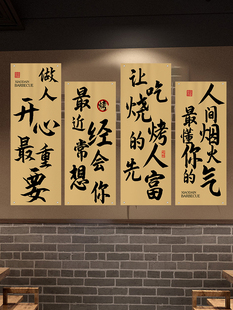 做人
BARBECUE
开心
最重要
最近经常会想你
让吃烧烤的人先富
人间烟火气
最懂你的
BARBECUE